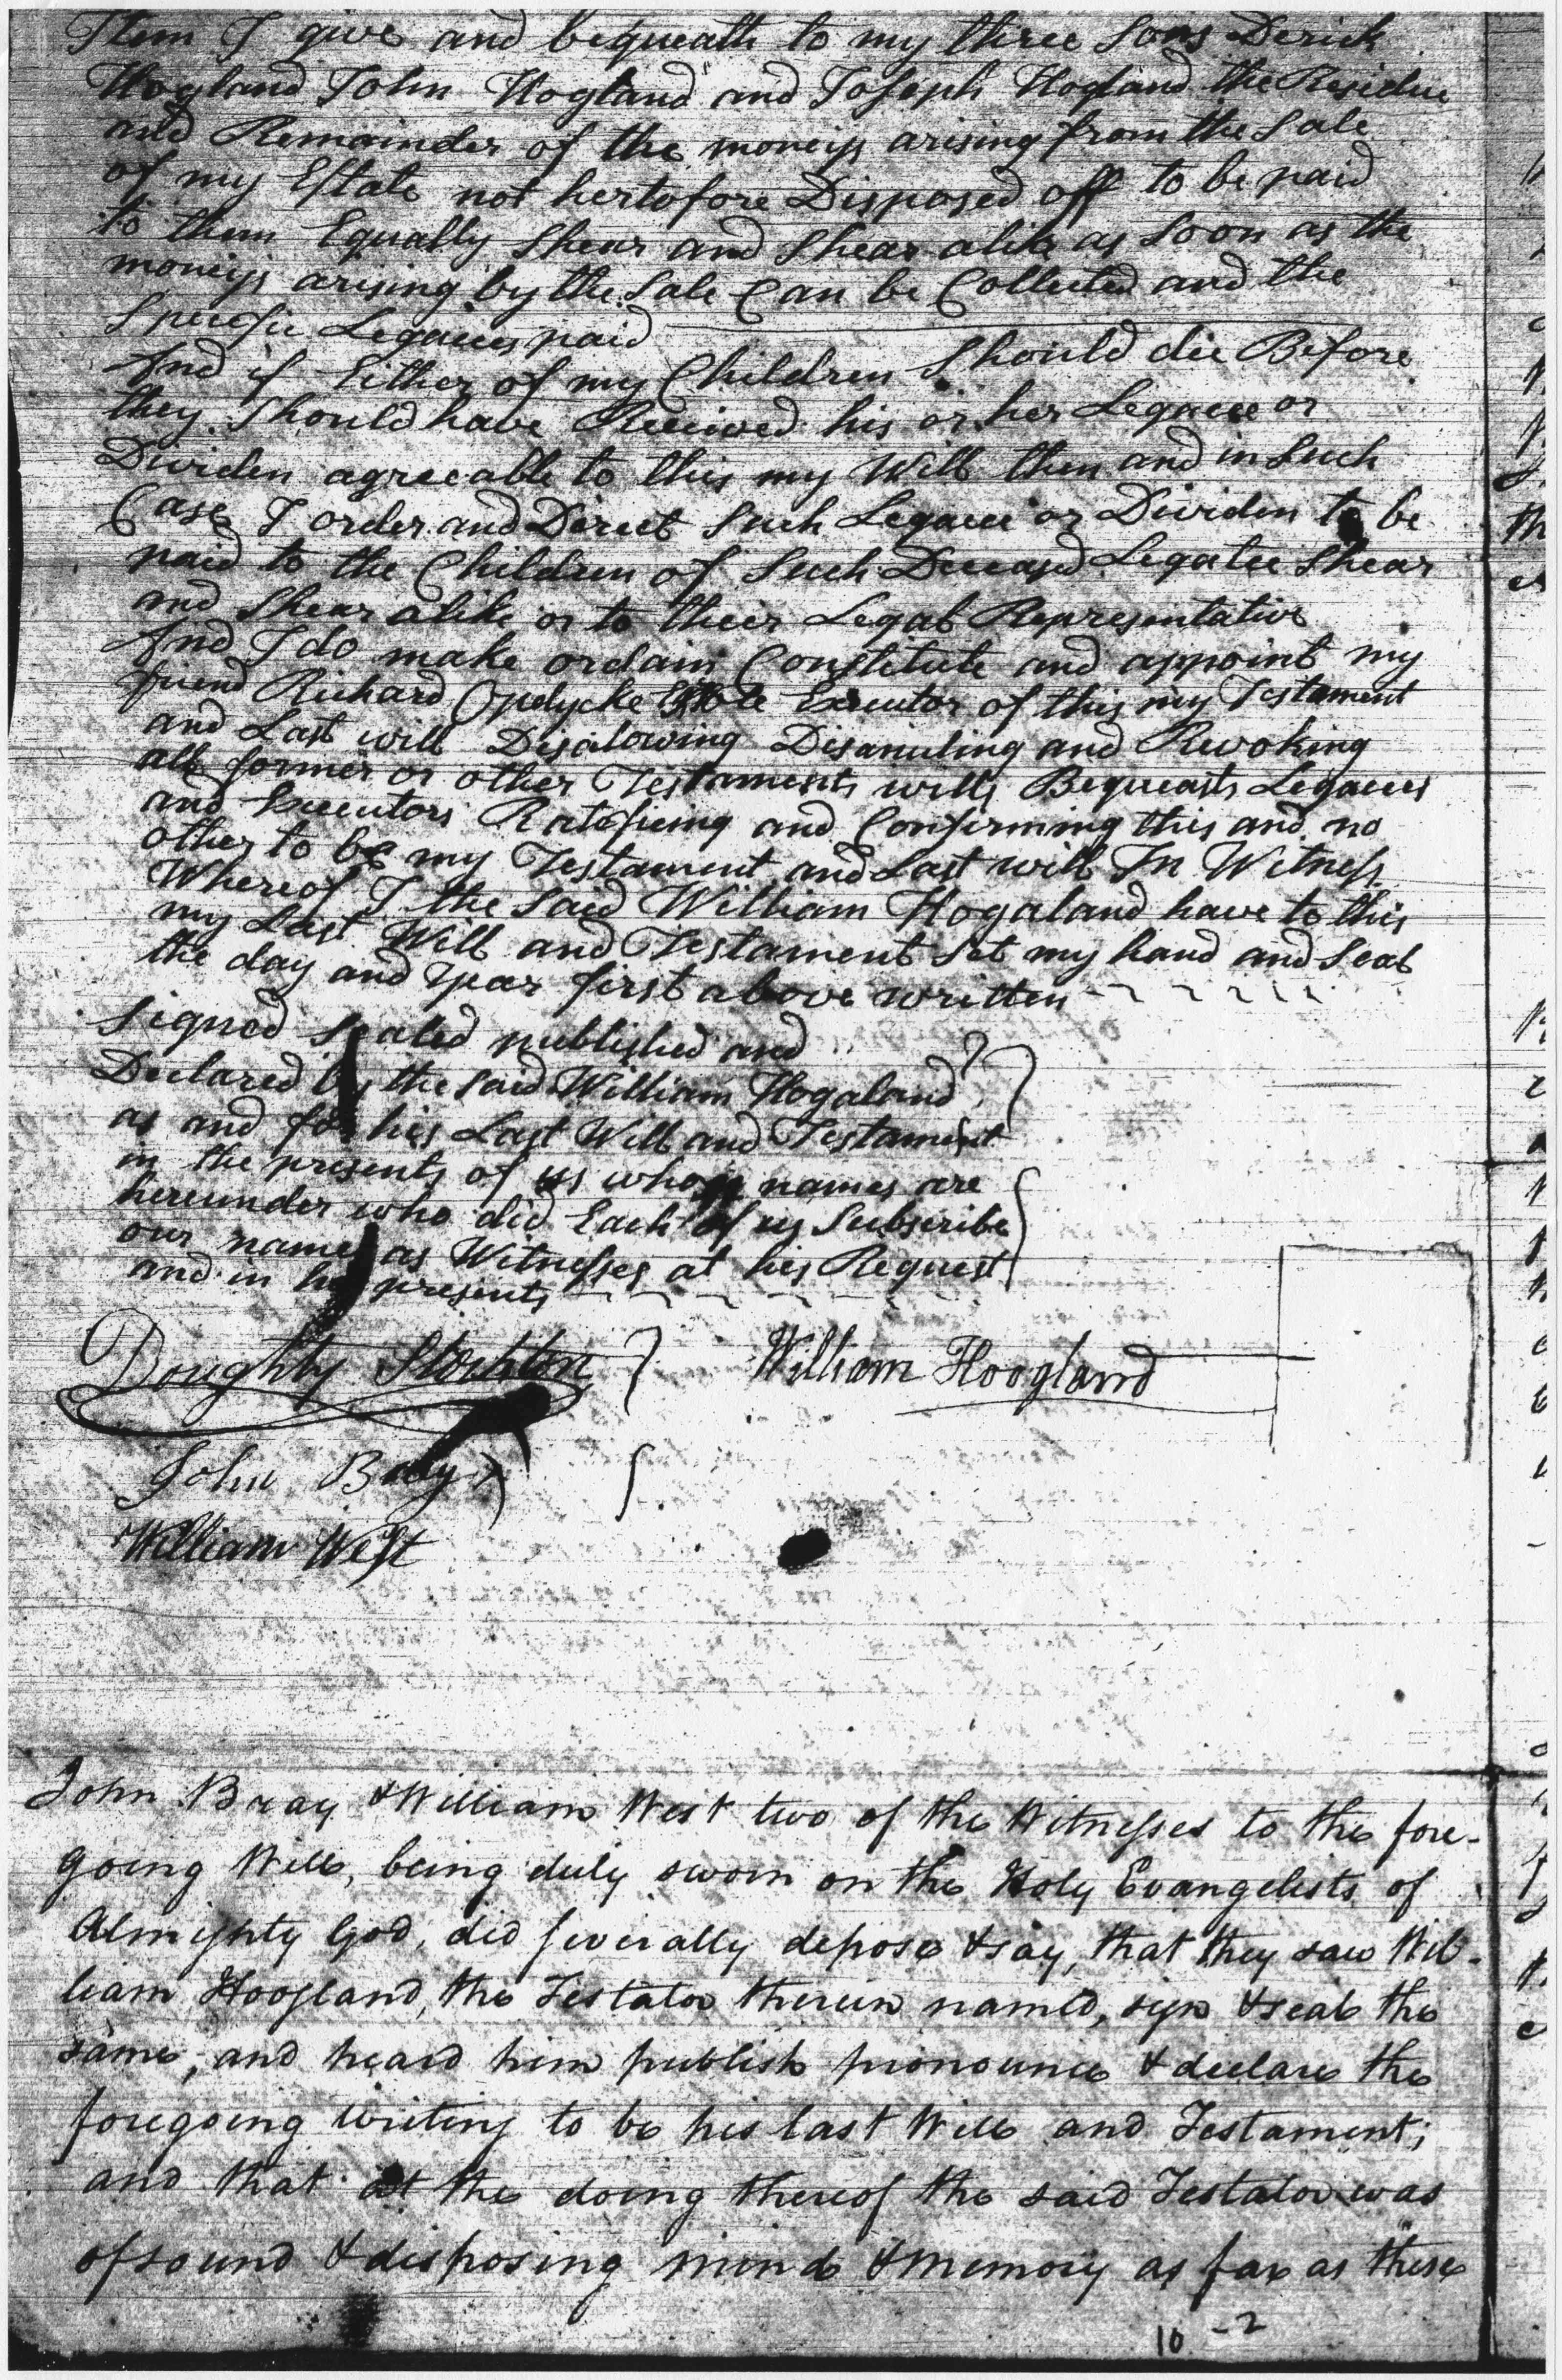 Item I give and bequeath to my three Sons Derick
Hogland John Hogland and Joseph Hogland the Residue
and Remainder of the moneys arising from the Sale
of my Estate not hertofore Disposed off to be paid
to them Equally Shear and Shear alike as Soon as the
moneys arising by the Sale Can be Collected and the
Specific Legacies paid
And if Either of my Children Should die Before
they Should have Received his or her Legacee or
Dividen agreeable to this my Will then and in Such
Case I order and Direct Such Legacee or Dividen to be
paid to the Children of Such Deceased Legatee Shear
and Shear alike or to their Legal Representative
And I do make ordain Constitute and appoint my
friend Richard Opdycke Executor of this my Testament
and Last will Disalowing Disanuling and Revoking
all former or other Testaments wills Bequeasts Legacees
and Executors Ratefieing and Confirming this and no
other to be my Testament and Last will In Witness
Whereof I the Said William Hogaland have to this
my Last Will and Testament Set my hand and Seal
the day and year first above written
Signed Sealed published and
Declared by the Said William Hogaland
as and for his Last Will and Testament
in the presents of us whose names are
hereunder who did Each of us Subscribe
our names as Witnesses at his Request
and in his presents
Doughty Stockton
William Hoogland
John Bray
William West
John Bray & William West two of the Witnesses to the fore-
going Will, being duly sworn on the Holy Evangelists of
Almighty God, did severally depose & say, that they saw Wil-
liam Hoogland, the Testator therein named, sign & seal the
same, and heard him publish pronounce & declare the
foregoing writing to be his last Will and Testament;
and that at the doing thereof the said Testator was
of sound & disposing mind & memory as far as these
10 - 2